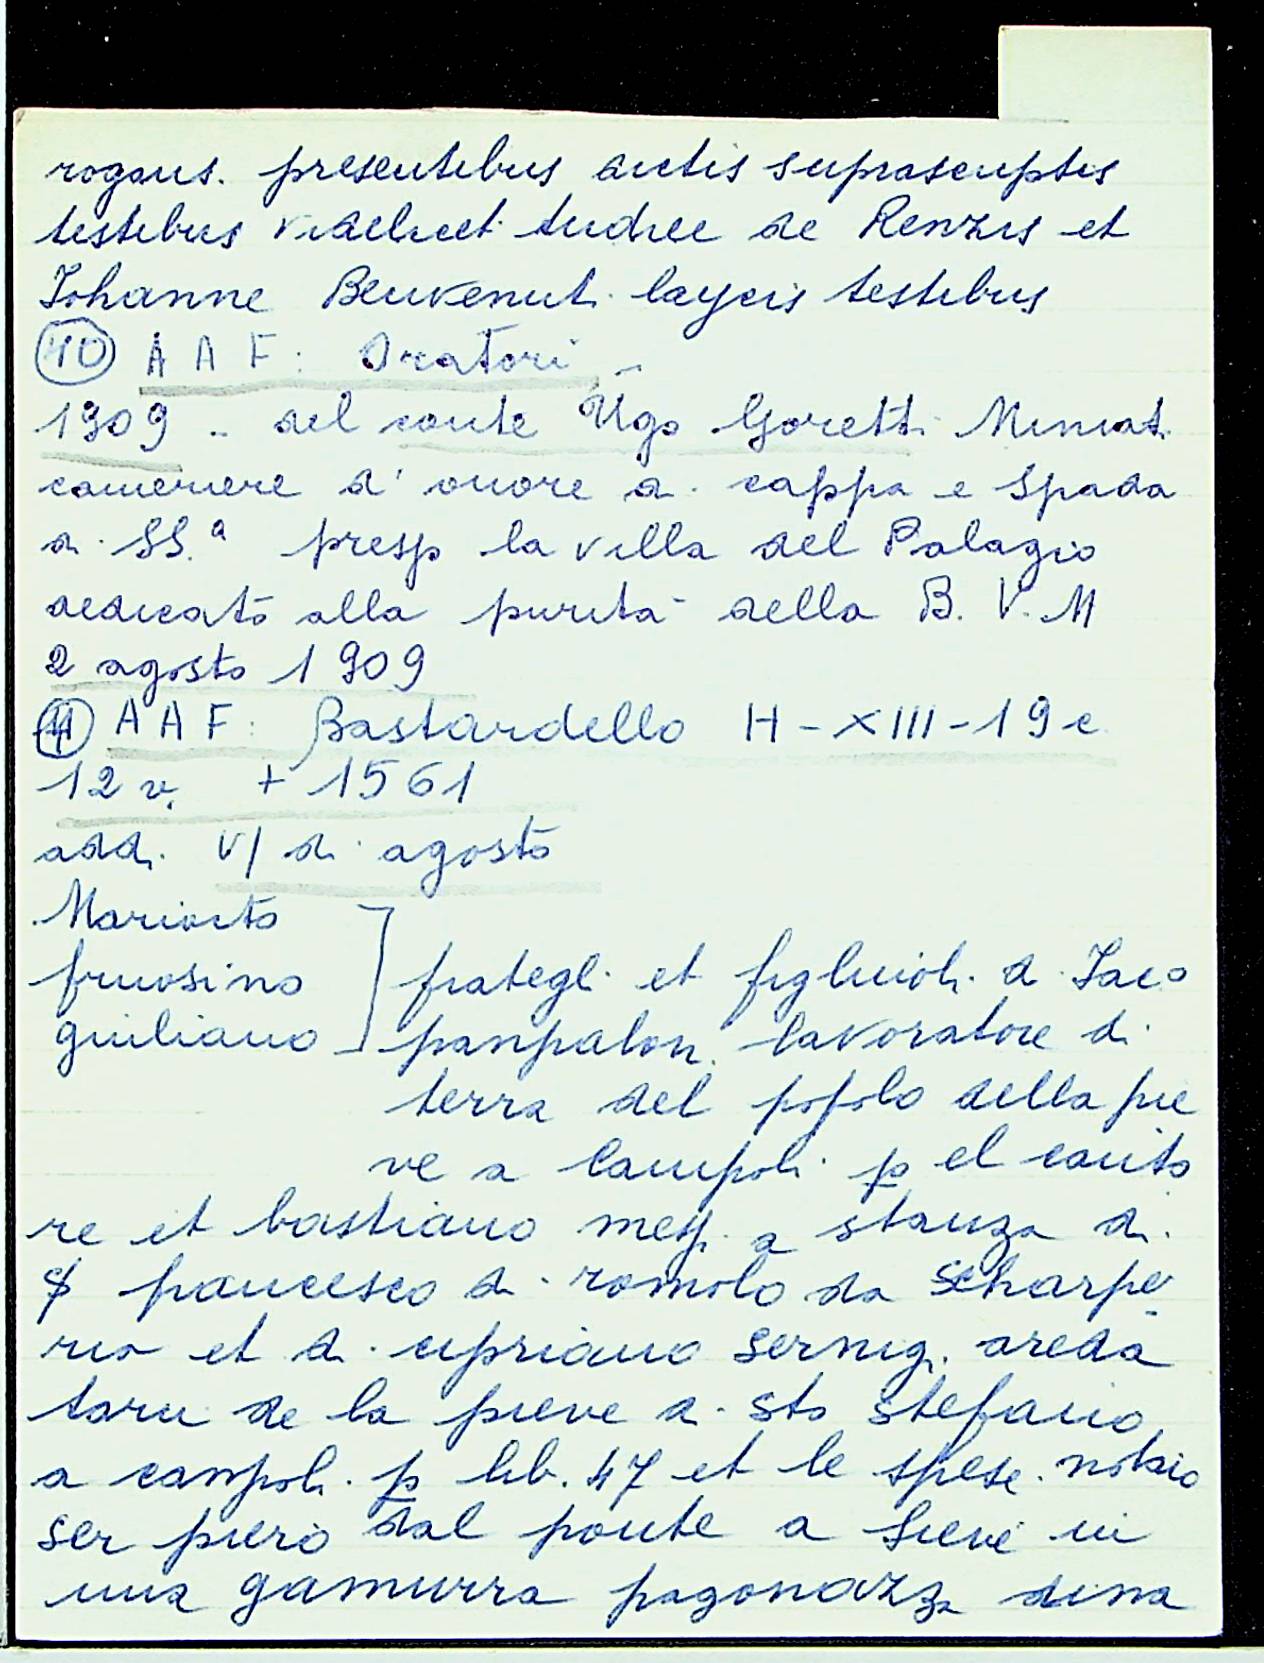 rogaus. presentibus dictis suprascriptis
testibus videlicet Andree de Renzis et
Iohanne Benvenuti laycis testibus
(10) A A F: Oratori -
1909 - del conte Ugo Goretti Miniati
cameriere d'onore di cappa e spada
di SS.a presso la villa del Palagio
dedicato alla purità della B. V. M
2 agosto 1909
(11) A A F: Bastardello H - XIII - 19 c
12 v. + 1561
addi VI di agosto
Mariocto
fruosino
giuliano
frategli et figluioli di Iaco
panpaloni lavoratore di
terra del popolo della pie
ve a Campoli p el canto
re et bastiano mess. a stanza di
S francesco di romolo da Scharpe
ria et di cipriano sernigi areda
tarii de la pieve di sto stefano
a campoli p lib. 47 et le spese. notaio
ser piero dal ponte a Sieve in
una gamurra pagonazza